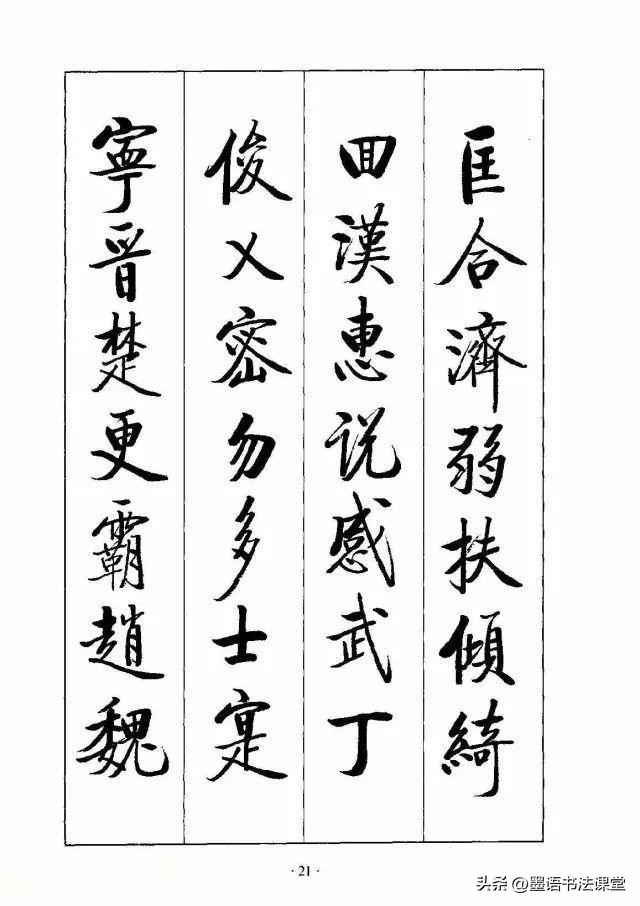 匡合濟弱扶傾綺
回漢惠说感武丁
俊乂密勿多士寔
寧晉楚更霸趙魏
·21·
头条@墨语书法课堂